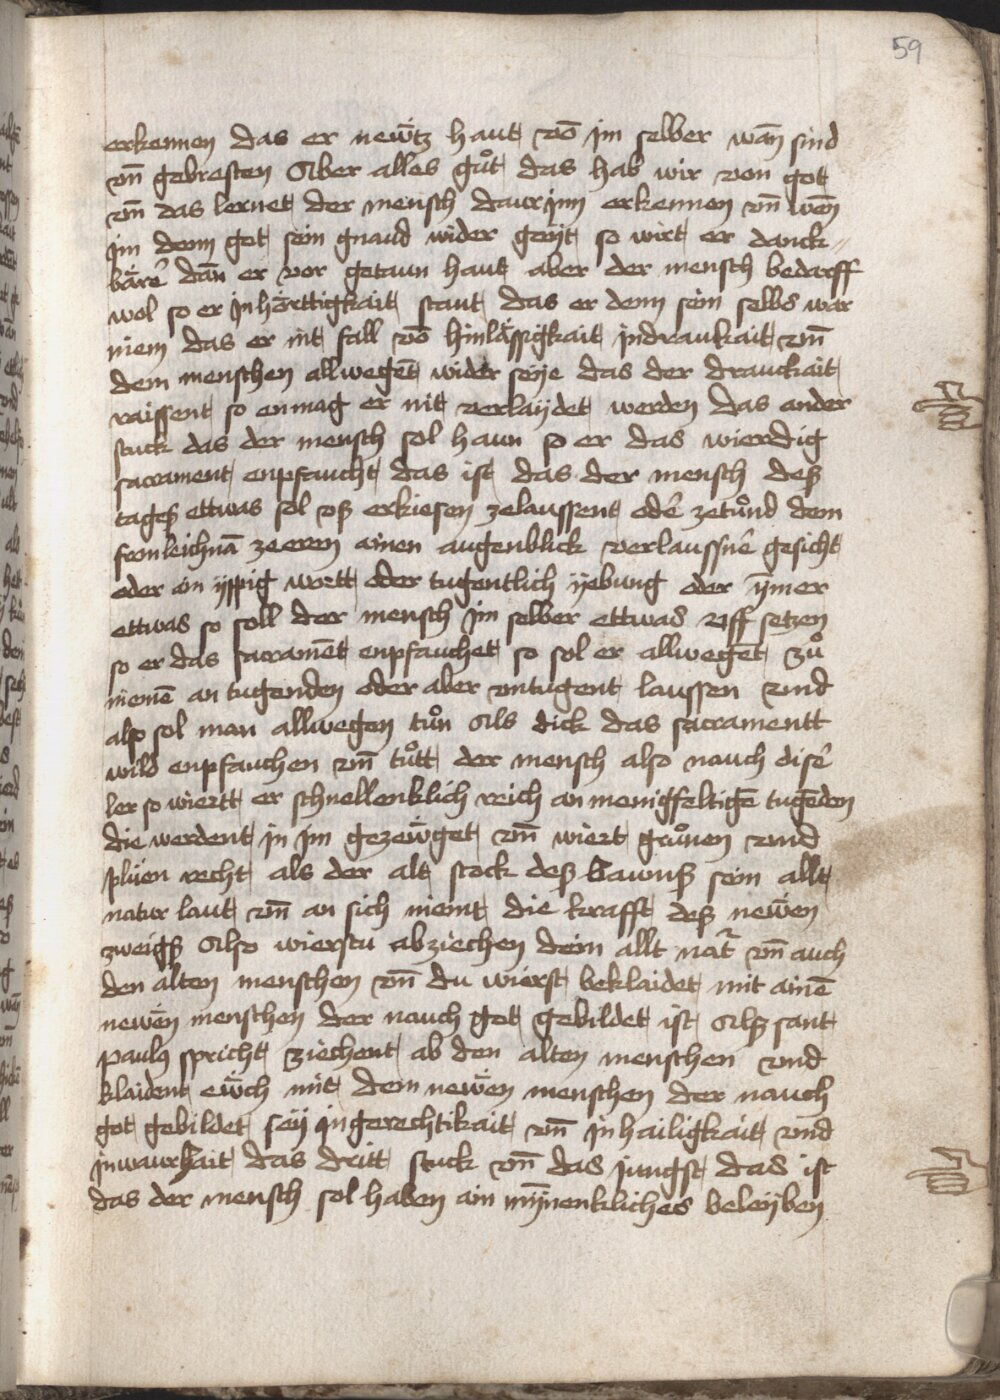 59
erkennen das er newtz haut võ jm selber wañ sind
vñ gebresten Aber alles gůt das hab wir von got
vñ das lernet der mensch daurjnn erkennen vñ weñ
jm denn got sein gnaud wider geyt so wirt er danck„
bärẽ dañ er vor getaun haut aber der mensch bedarff
wol so er jn hörttigkait staut das er denn sein selbs war
niem das er nit fall võ hinlässigkait jn draukait vñ
dem menschen allwegẽt wider seye das der drauckait
raissent so enmag er nit verlaydet werden das ander
stuck das der mensch sol haun so er das wierdig
sacrament enpfaucht das ist das der mensch deß
tageß ettwas sol vß erkiesen zelaussent odẽ zetůnd dem
fronleichnã ze eren ainen augenblick verlaussnẽ gesicht
oder ain yppig wortt oder tugentlich yebung oder ÿmer
ettwas so soll der mensch jm selber ettwas vff setzen
so er das sacramẽt enpfauchet so sol er allwegẽt zů
niemẽ an tugenden oder aber vntugent laussen vnd
also sol man allwegen tůn Als dick das sacramentt
wild enpfauchen vñ tůtt der mensch also nauch disẽ
ler so wiertt er schnellenklich reich an menigfeltigẽ tugẽden
die werdent jn jm gezewget vñ wiert grůnen vnd
plüen recht als der alt stock deß bawmß sein allt
natur laut vñ an sich niemt die krafft deß newen
zweigß Also wierstu abziechen dein allt nat̃ vñ auch
den alten menschen vñ du wierst beklaidet mit ainẽ
newen menschen der nauch got gebildet ist Alß sant
paulꝰ spricht ziechent ab den alten menschen vnd
klaident ewch mit dem newen menschen der nauch
got gebildet sey jn gerechtikait vñ jn hailigkait vnd
jn waurhait das dritt stuck vñ das jungst das ist
das der mensch sol haben ain mÿnenkliches beleyben